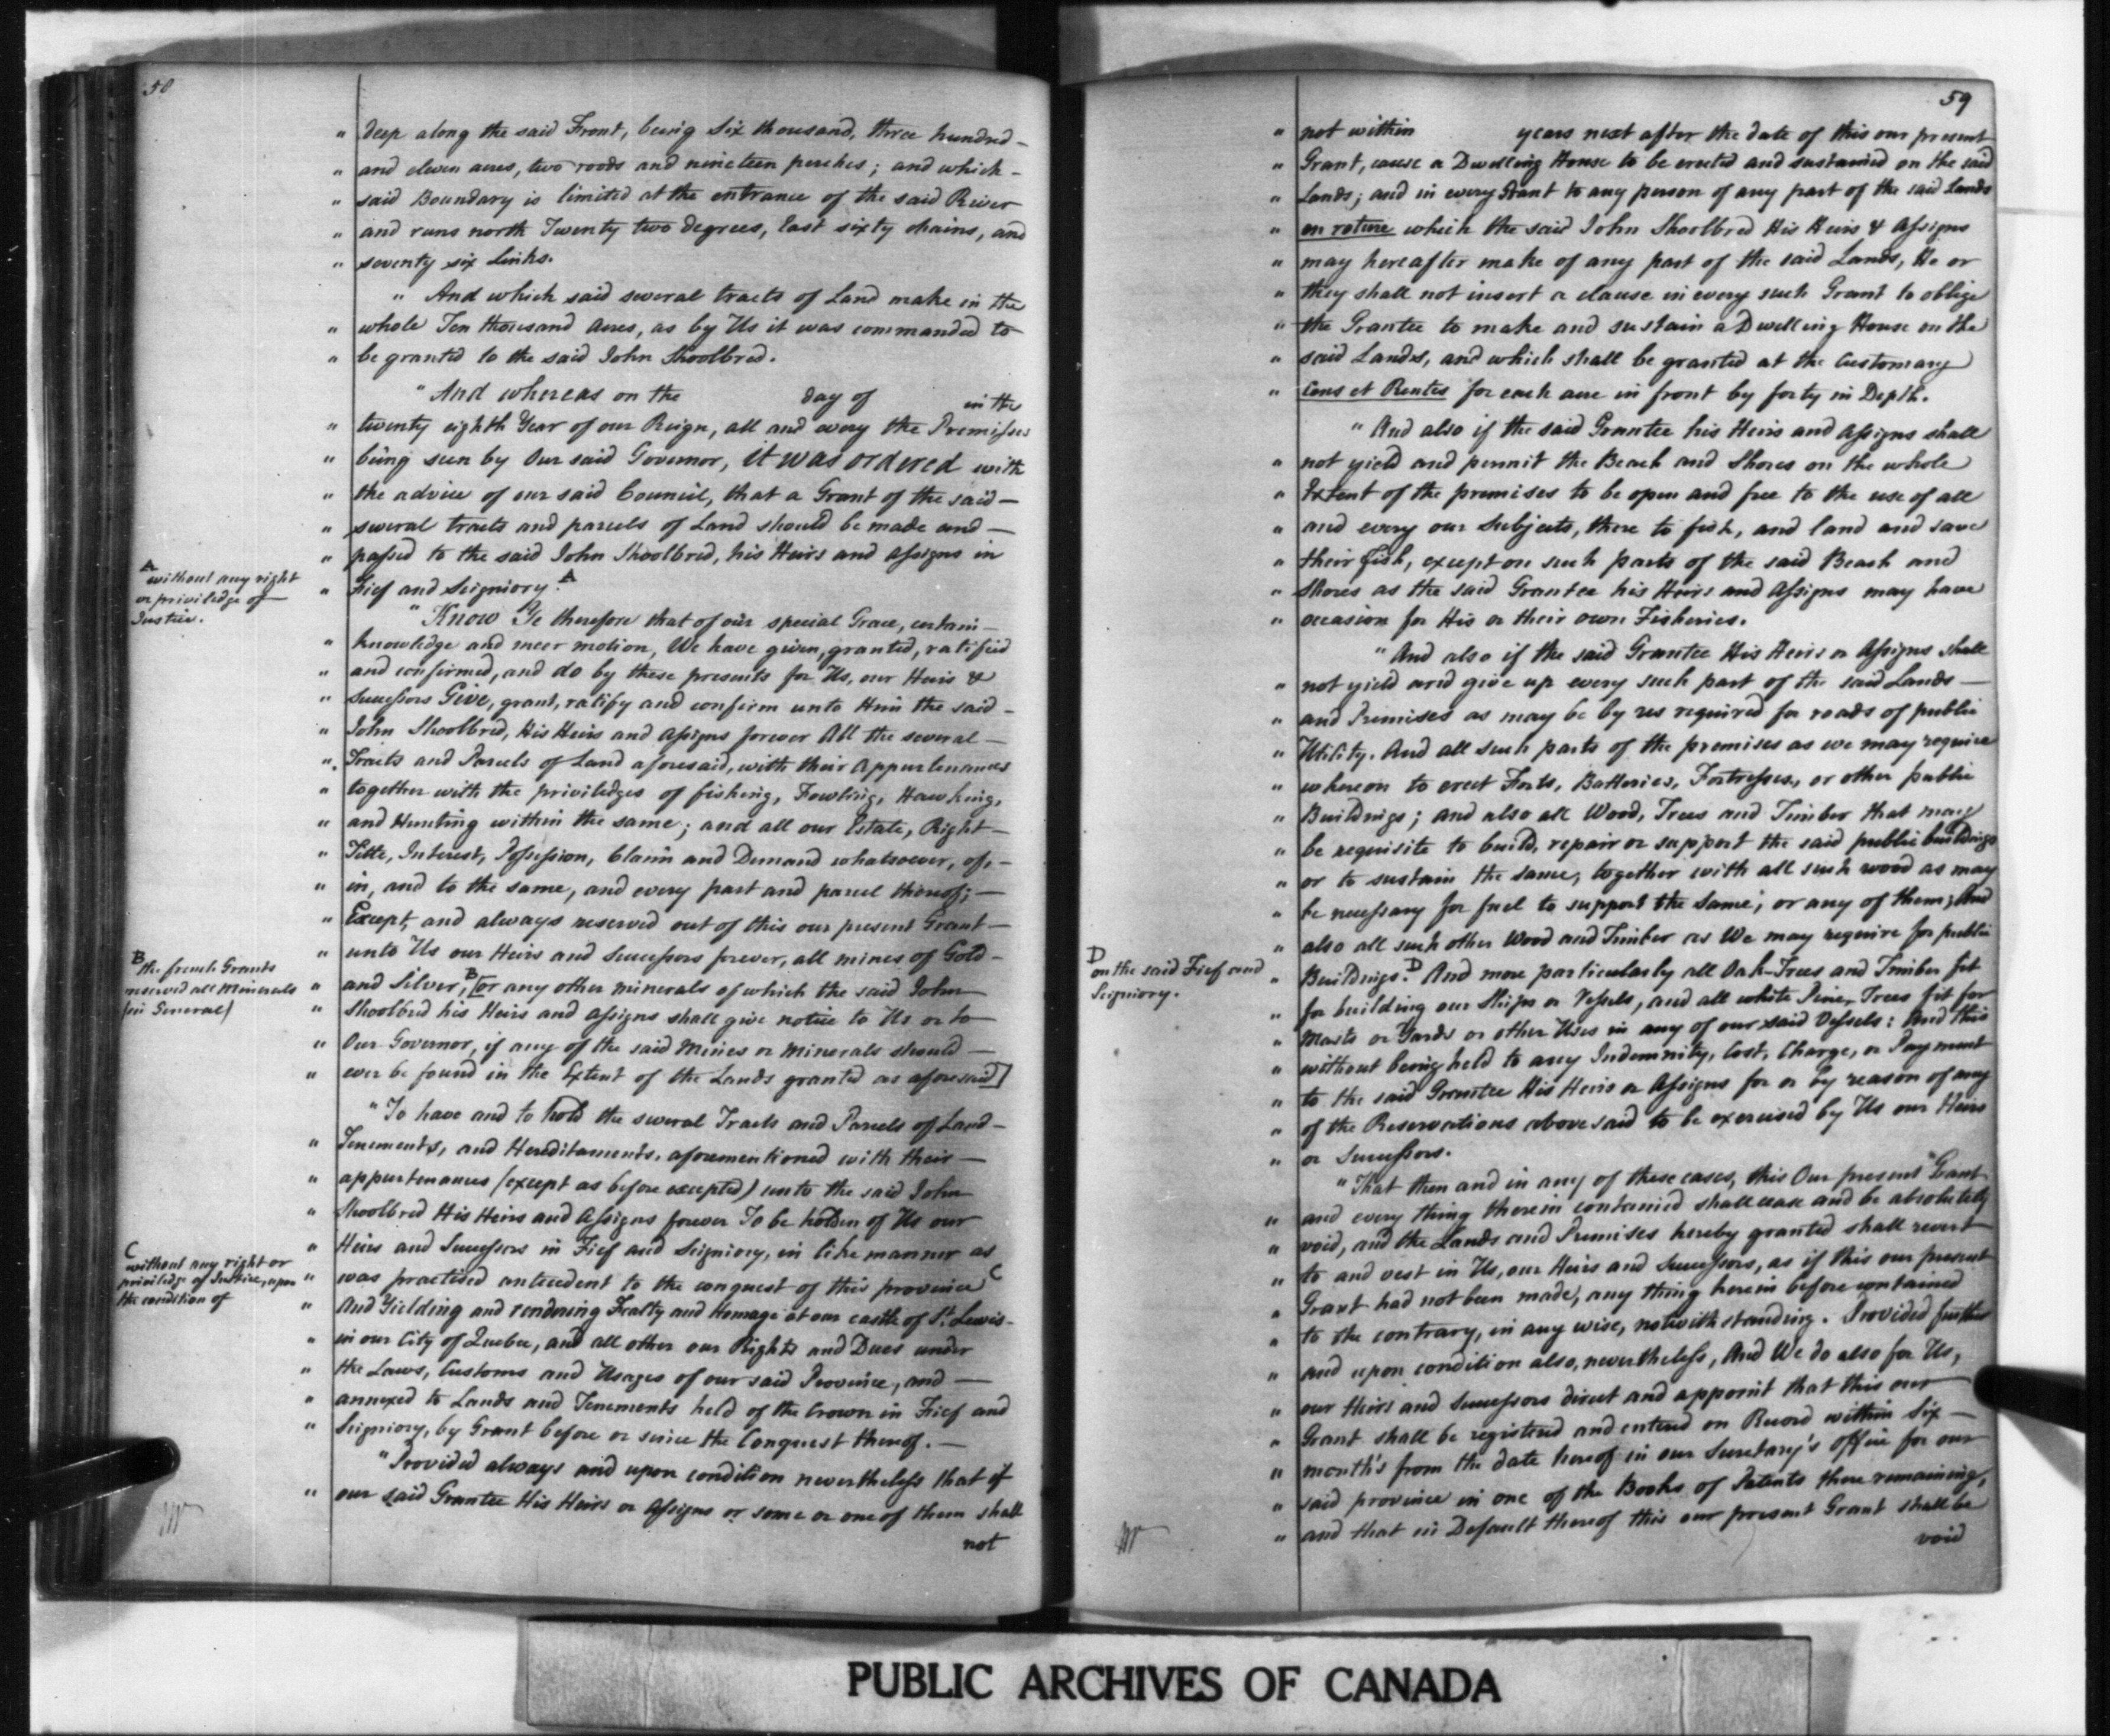 58
" deep along the said Front, being Six thousand, three hundred –
" and eleven acres, two roods and nineteen perches; and which –
" said Boundary is limited at the entrance of the said River
" and runs north Twenty two degrees, East sixty chains, and
" seventy six Links.
" And which said several tracts of Land make in the
" whole Ten thousand Acres, as by Us it was commanded to
" be granted to the said John Shoolbred.
" And whereas on the day of in the
" twenty eighth Year of our Reign, all and every the Premisses
" being seen by Our said Governor, it was ordered with
" the advice of our said Council, that a Grant of the said –
" several tracts and parcels of Land should be made and –
" passed to the said John Shoolbred, his Heirs and Assigns in
" Fief and Seigniory. A
A without any right
or priviledge of
Justice.
" Know Ye therefore that of our special Grace, certain –
" knowledge and meer motion, We have given, granted, ratified
" and confirmed, and do by these presents for Us, our Heirs &
" Successors Give, grant, ratify and confirm unto Him the said –
" John Shoolbred, His Heirs and Assigns forever All the several –
" Tracts and Parcels of Land aforesaid, with their Appurtenances
" together with the priviledges of fishing, Fowling, Hawking,
" and Hunting within the same; and all our Estate, Right –
" Title, Interest, Possession, Claim and Demand whatsoever, of, –
" in, and to the same, and every part and parcel thereof; –
" Except, and always reserved out of this our present Grant –
" unto Us our Heirs and Successors forever, all mines of Gold –
" and Silver, B [or any other minerals of which the said John
B the french Grants
reserved all Minerals
(in General)
" Shoolbred his Heirs and Assigns shall give notice to Us or to
" Our Governor, if any of the said Mines or Minerals should –
" ever be found in the Extent of the Lands granted as aforesaid]
" To have and to hold the several Tracts and Parcels of Land –
" Tenements, and Hereditaments, aforementioned with their –
" appurtenances (except as before excepted) unto the said John
" Shoolbred His Heirs and Assigns forever To be holden of Us our
" Heirs and Successors in Fief and Seigniory, in like manner as
" was practised antecedent to the conquest of this province C
C without any right or
priviledge of Justice, upon
the condition of
" And Yielding and rendering Fealty and Homage at our castle of St. Lewis –
" in our City of Quebec, and all other our Rights and Dues under
" the Laws, Customs and Usages of our said Province, and –
" annexed to Lands and Tenements held of the Crown in Fief and
" Seigniory, by Grant before or since the Conquest thereof. –
" Provided always and upon condition nevertheless that if
" our said Grantee His Heirs or Assigns or some or one of them shall
not
59
" not within years next after the date of this our present
" Grant, cause a Dwelling House to be erected and sustained on the said
" Lands; and in every Grant to any person of any part of the said Lands
" en roture which the said John Shoolbred His Heirs & Assigns
" may hereafter make of any part of the said Lands, He or
" they shall not insert a clause in every such Grant to oblige
" the Grantee to make and sustain a Dwelling House on the
" said Lands, and which shall be granted at the Customary
" Cens et Rentes for each acre in front by forty in Depth.
" And also if the said Grantee his Heirs and Assigns shall
" not yield and permit the Beach and Shores on the whole
" Extent of the premises to be open and free to the use of all
" and every our Subjects, there to fish, and land and save
" their fish, except on such parts of the said Beach and
" Shores as the said Grantee his Heirs and Assigns may have
" occasion for His or their own Fisheries.
" And also if the said Grantee His Heirs or Assigns shall
" not yield and give up every such part of the said Lands –
" and Premises as may be by us required for roads of public
" Utility. And all such parts of the premises as we may require
" whereon to erect Forts, Batteries, Fortresses, or other public
" Buildings; and also all Wood, Trees and Timber that may
" be requisite to build, repair or support the said public buildings
" or to sustain the same, together with all such wood as may
" be necessary for fuel to support the same, or any of them; And
" also all such other Wood and Timber as We may require for public
D on the said Fief and
Seigniory.
" Buildings. D And more particularly all Oak-Trees and Timber fit
" for building our Ships or Vessels, and all white Pine, Trees fit for
" Masts or Yards or other Uses in any of our said Vessels: And this
" without being held to any Indemnity, Cost, Charge, or Payment
" to the said Grantee His Heirs or Assigns for or by reason of any
" of the Reservations abovesaid to be exercised by Us our Heirs
" or Successors.
" That then and in any of these cases, this Our present Grant
" and every thing therein contained shall cease and be absolutely
" void, and the Lands and Premises hereby granted shall revert
" to and vest in Us, our Heirs and Successors, as if this our present
" Grant had not been made, any thing herein before contained
" to the contrary, in any wise, notwithstanding. Provided further
" and upon condition also, nevertheless, And We do also for Us,
" our Heirs and Successors direct and appoint that this our
" Grant shall be registered and entered on Record within Six –
" month's from the date hereof in our Secretary's office for our
" said province in one of the Books of Patents there remaining,
" and that in Default thereof this our present Grant shall be
void
PUBLIC ARCHIVES OF CANADA